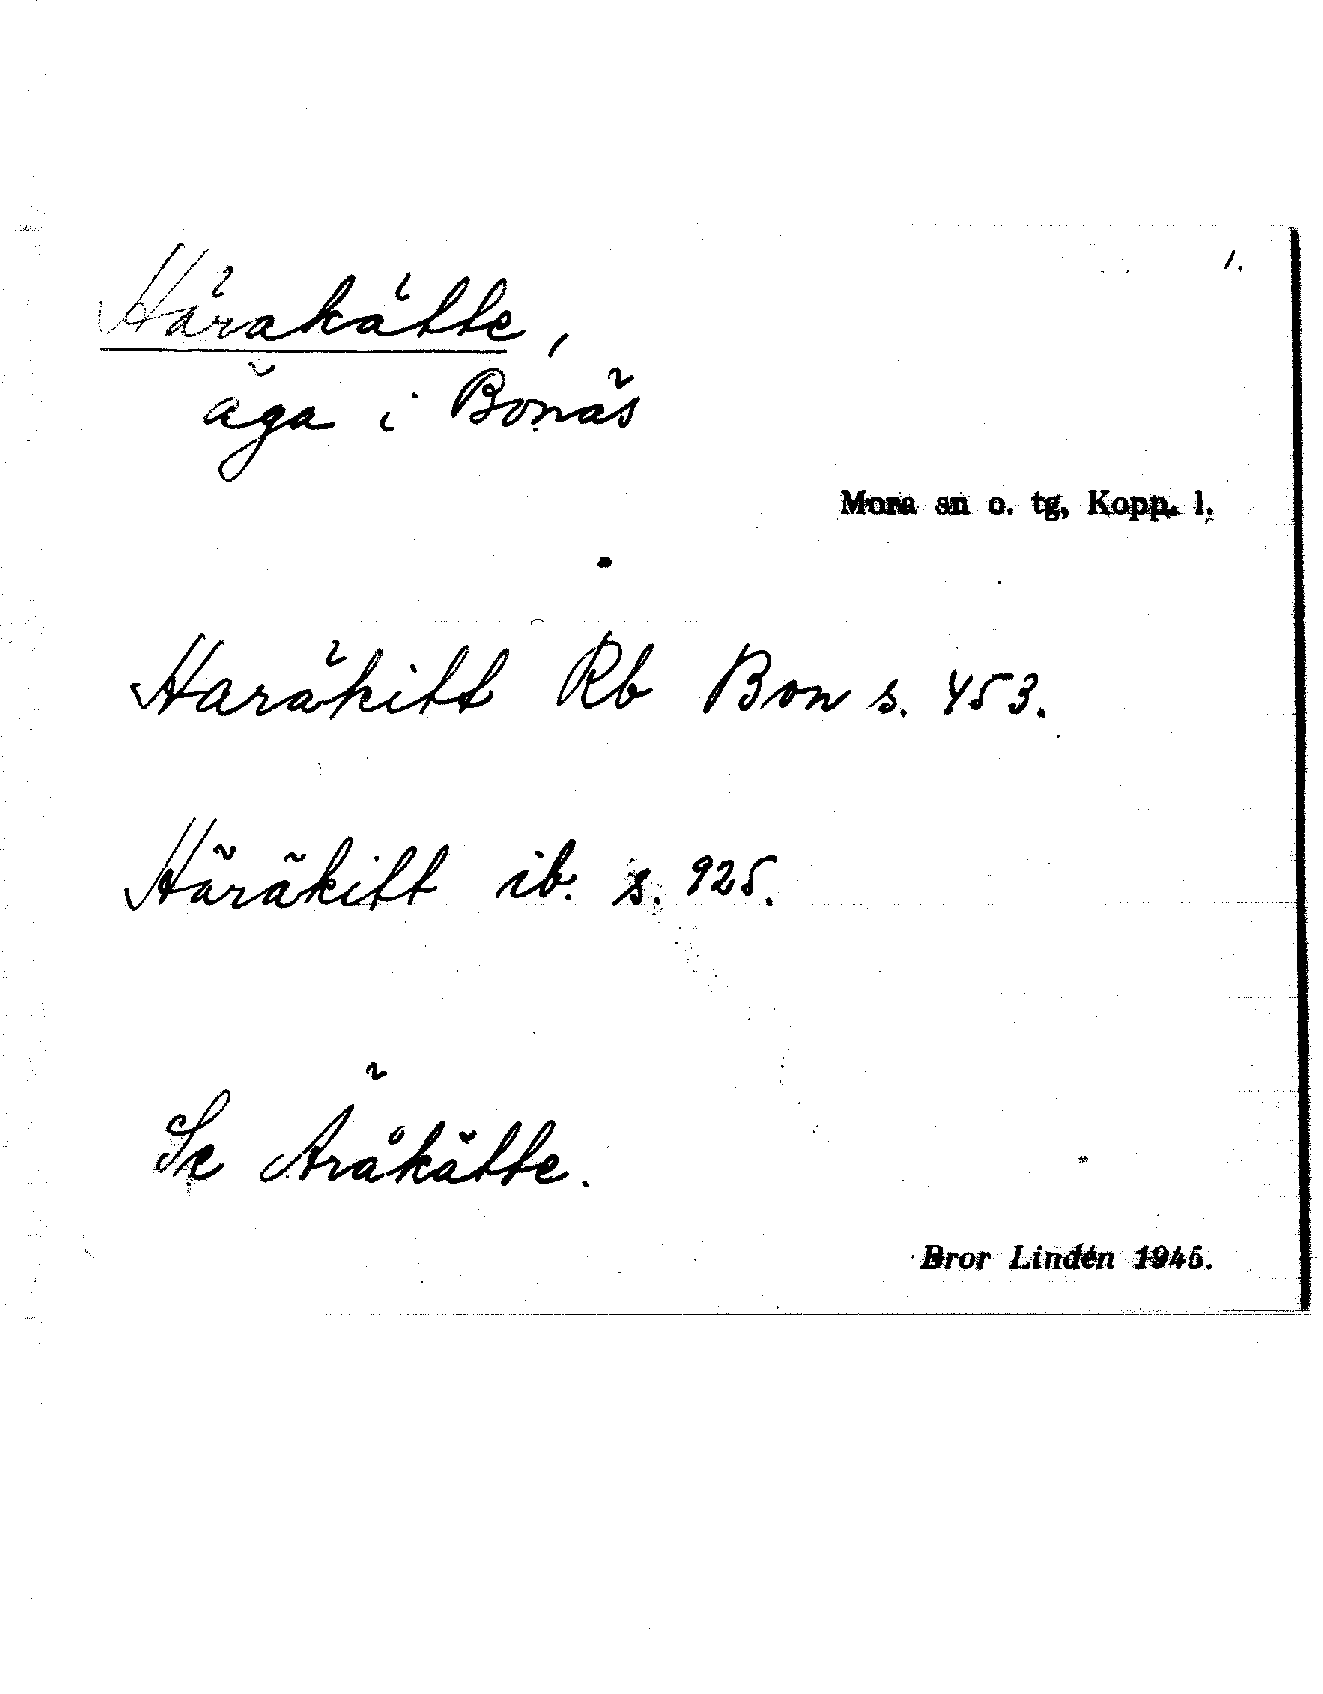 1.
Härakätte,
äga i Bonäs
Mora sn o. tg, Kopp. l.
Haräkitt Rb Bon s. 453.
Häräkitt ib. s. 925.
Se Äråkätte.
Bror Lindén 1945.